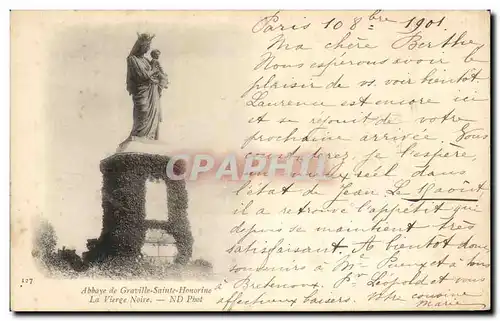 Paris 10 8bre 1901
Ma chère Berthe,
Nous espérons avoir le
plaisir de vs. voir bientôt.
Laurence est encore ici
et se réjouit de votre
prochaine arrivée. Vous
je l'espère,
un mieux réel dans
l'état de Jean. Le
il a retrouvé l'appétit qui
depuis se maintient très
satisfaisant. A bientôt donc
souvenirs à Mr et à tous
à Pr. Léopold et vous
affectueux baisers. Votre cousine
Marie
CPHAPHIL.COM
127
Abbaye de Graville-Sainte-Honorine
La Vierge Noire. — ND Phot